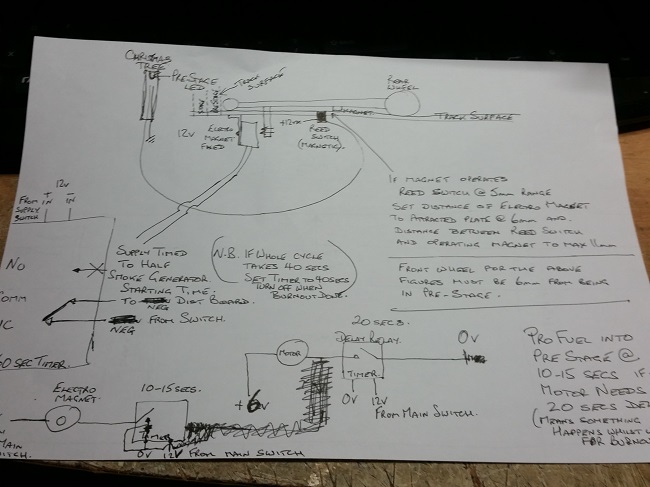 CHRISTMAS
TREE
PRE-STAGE
LED
STAGE
PRE-STAGE
TRACK SURFACE
REAR
WHEEL
12V
ELECTRO
MAGNET
FIXED
+12V
MAGNET
REED
SWITCH
(MAGNETIC).
TRACK SURFACE
IF MAGNET OPERATES
REED SWITCH @ 5mm RANGE
SET DISTANCE OF ELECTRO MAGNET
TO ATTRACTED PLATE @ 6mm AND
DISTANCE BETWEEN REED SWITCH
AND OPERATING MAGNET TO MAX 11mm
FRONT WHEEL FOR THE ABOVE
FIGURES MUST BE 6mm FROM BEING
IN PRE-STAGE.
12V
FROM
SUPPLY
SWITCH
+
IN
-
IN
NO
COMM
IC
SUPPLY TIMED
TO HALF
SMOKE GENERATOR
STARTING TIME.
TO NEG DIST BOARD.
NEG FROM SWITCH.
0 SEC TIMER.
N.B. IF WHOLE CYCLE
TAKES 40 SECS
SET TIMER TO 40 SECS
TURN OFF WHEN
BURNOUT DONE.
20 SECS.
DELAY RELAY.
MOTOR
TIMER
0V
12V
FROM MAIN SWITCH.
0V
+6V
PRO FUEL INTO
PRE STAGE @
10-15 SECS IF
MOTOR NEEDS
20 SECS DE
(MEANS SOMETHING
HAPPENS WHILST
FOR BURNO
ELECTRO
MAGNET.
10-15 SECS.
TIMER
0V
12V
FROM MAIN SWITCH
MAIN
SWITCH.